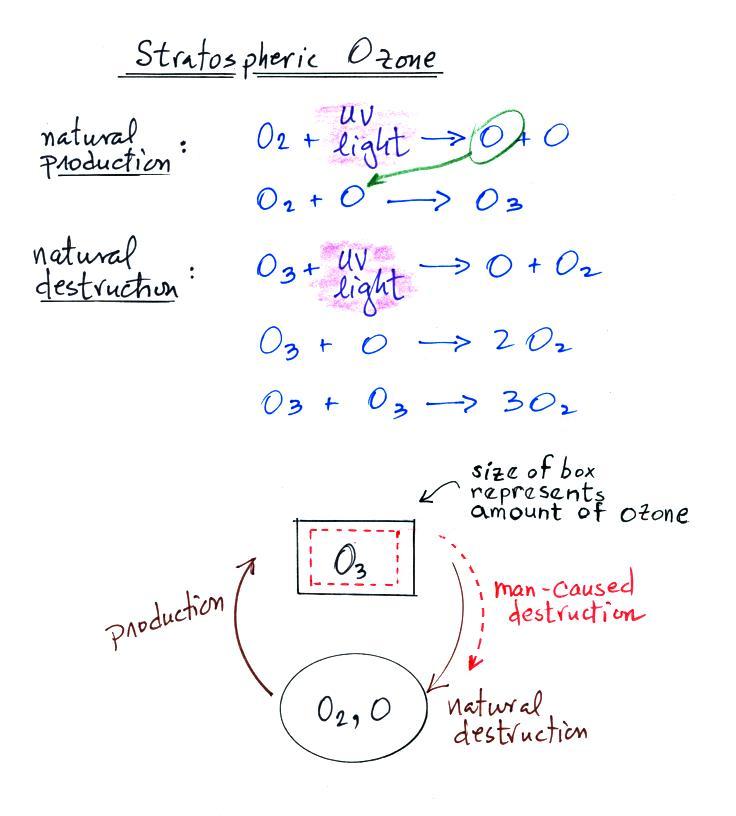 Stratospheric Ozone
natural production :
O2 + UV light → O + O
O2 + O → O3
natural destruction :
O3 + UV light → O + O2
O3 + O → 2 O2
O3 + O3 → 3O2
size of box
represents
amount of ozone
O3
man-caused
destruction
production
O2, O
natural
destruction